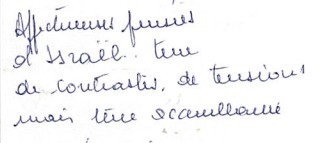 Affectueuses pensées
d'Israël. terre
de contrastes, de tensions
mais terre accueillante